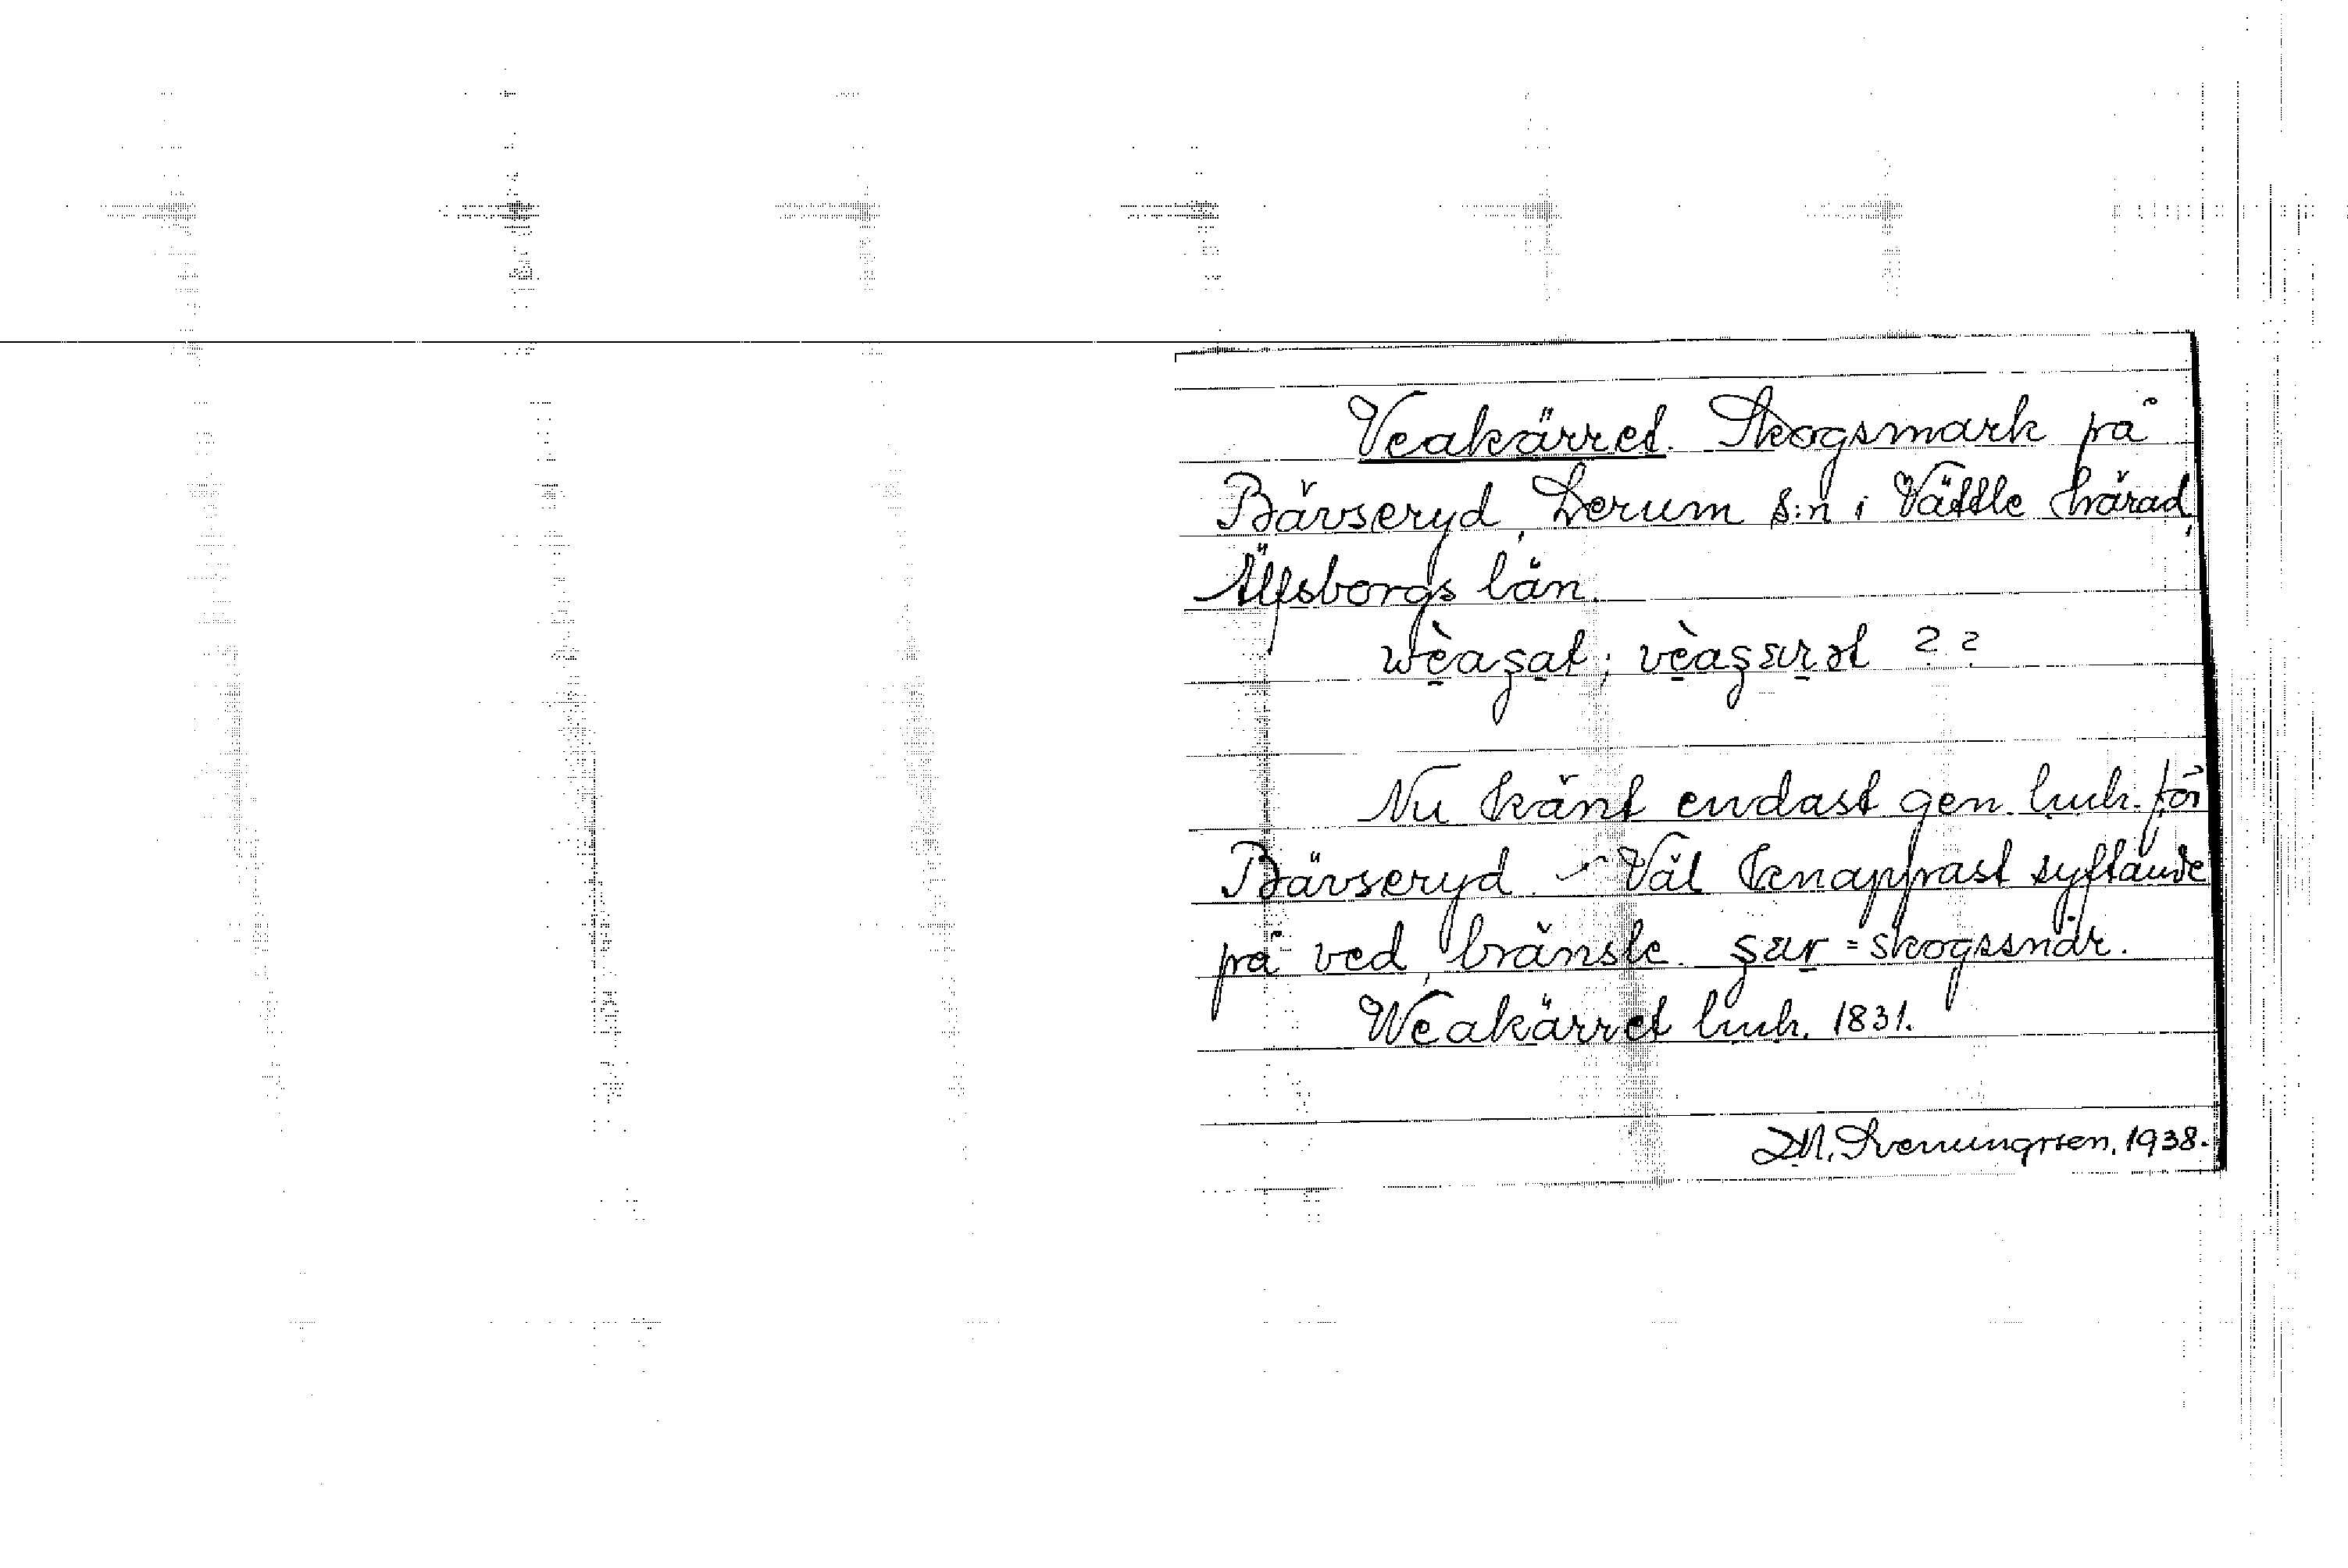 Veakärret. Skogsmark på
Bävseryd, Lerum s:n i Vättle härad,
Älfsborgs län.
wèaşat; vèaşærət ? ?
Nu känt endast gen. huh. för
Bävseryd. - Väl knappast syftande
på ved, bränsle. şær = skogssnår.
Weakärret huh. 1831.
M. Svenungsson. 1938.